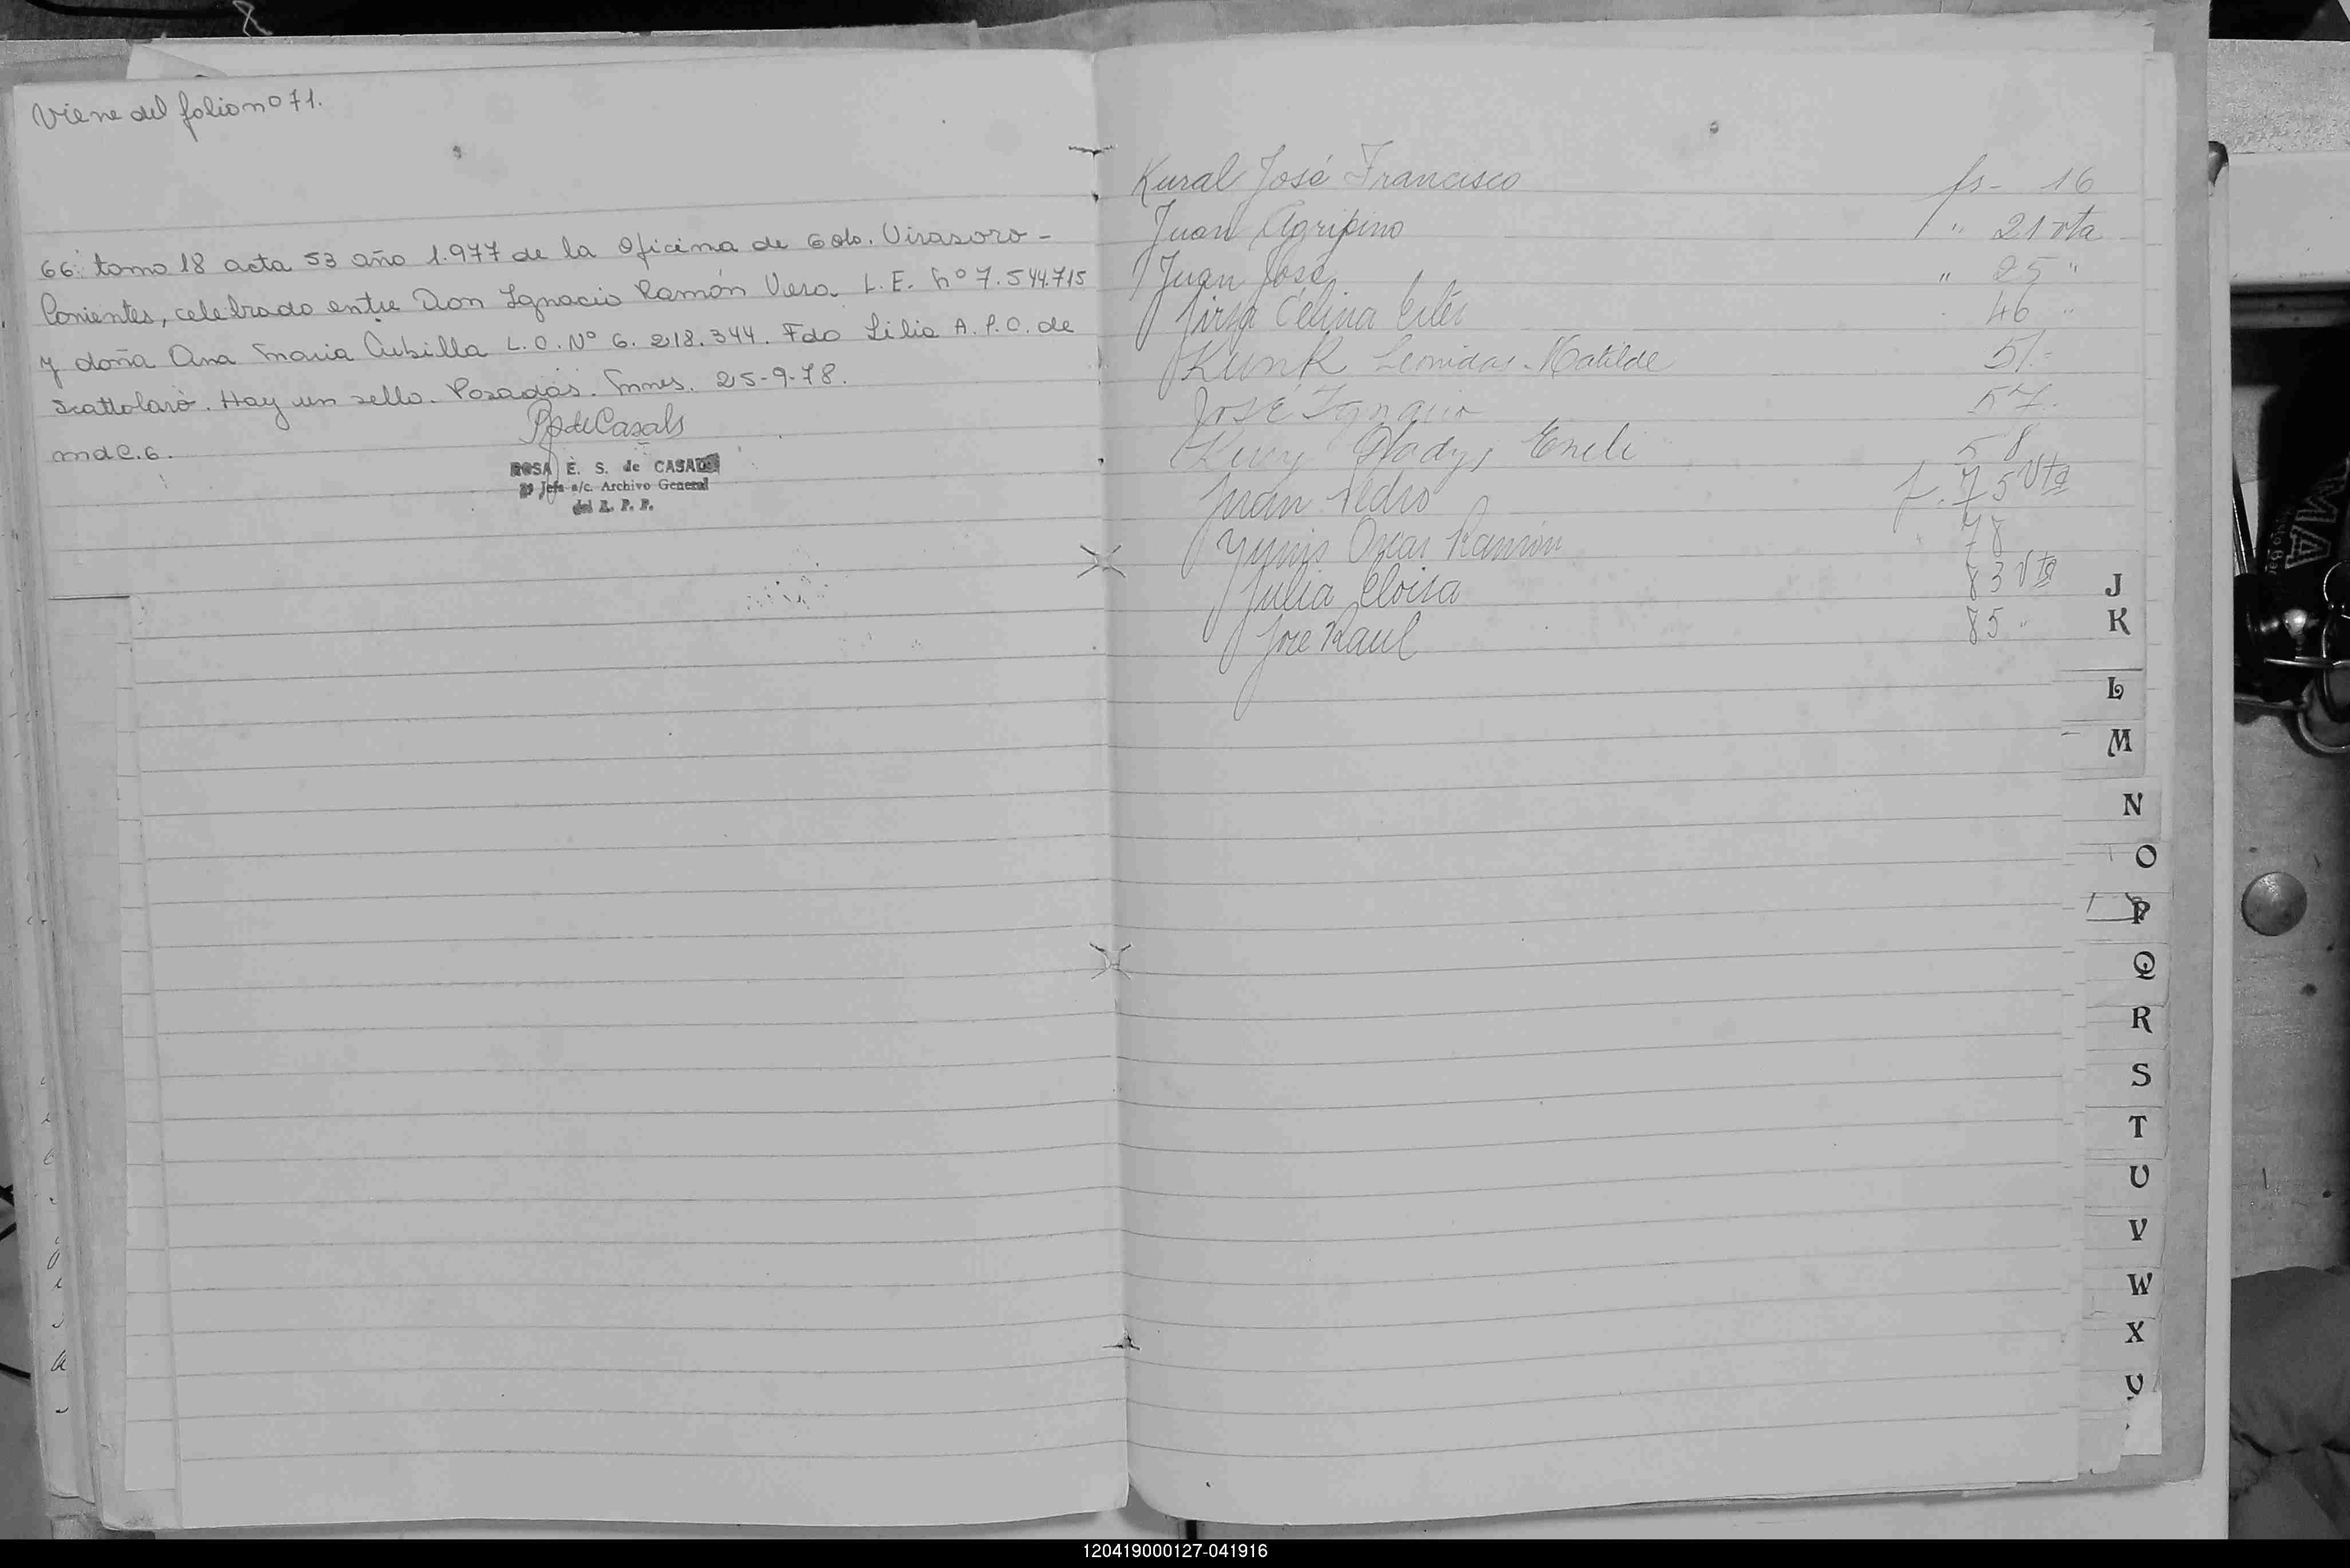 Viene del folio nº 71.
66. tomo 18 acta 53 año 1.977 de la Oficina de Gob. Virasoro -
Corrientes, celebrado entre Don Ignacio Ramón Vera L.E. Nº 7.544.715
y doña Ana Maria Cubilla L.C. Nº 6.218.344. Fdo Lilia A. P. C. de
Scattolaro. Hay un sello. Posadas. Mnes. 25-9-78.
mdC.G.
ROSA E. S. de CASALS
2º Jefe a/c. Archivo General
del R. P. P.
Kural José Francisco fs - 16
Juan Agripino " 21 vta
Juan José " 25 "
Celina 46 "
Kunk Leonidas - Matilde 51 -
José Ignacio 57 -
Gladys 58
Juan Pedro f. 75 Vta
Yunis Oscar Ramón " 78
Julia Eloisa 83 Vta
Jose Raul 85 "
J
K
L
M
N
O
P
Q
R
S
T
U
V
W
X
Y
120419000127-041916